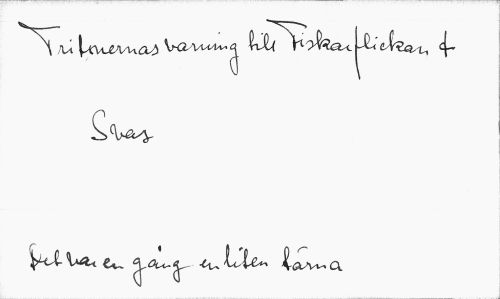 Tritonernas varning till Fiskarflickan &
Svar
Det var en gång en liten tärna